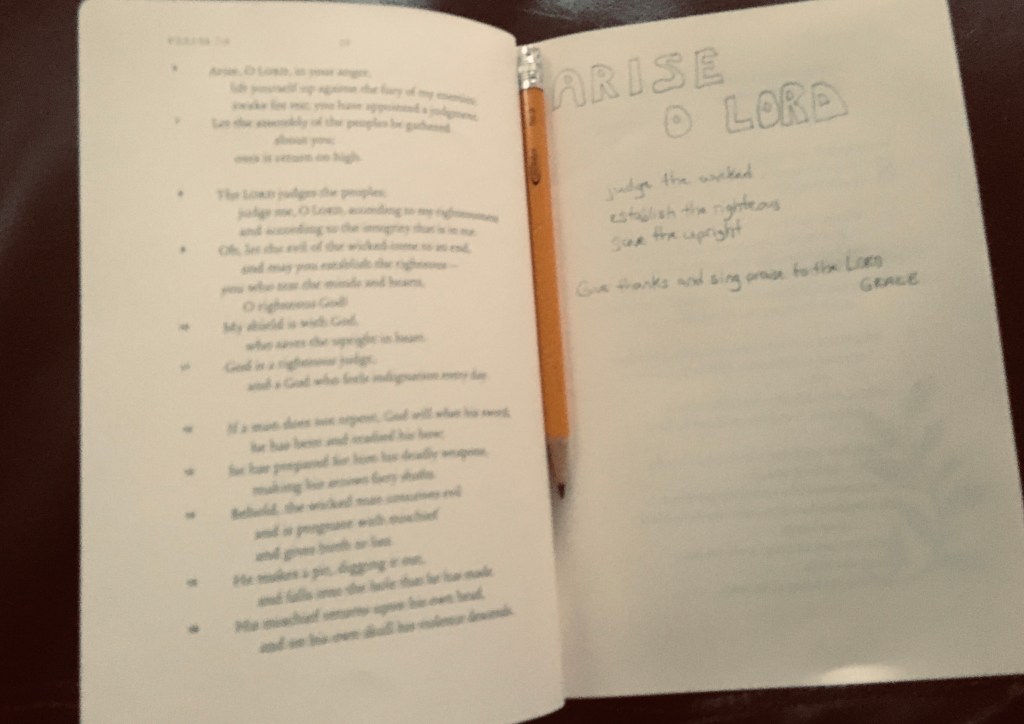 Arise, O LORD, in your anger;
lift yourself up against the fury of my enemies;
awake for me; you have appointed a judgment.
Let the assembly of the peoples be gathered
about you;
over it return on high.
The LORD judges the peoples;
judge me, O LORD, according to my righteousness
and according to the integrity that is in me.
Oh, let the evil of the wicked come to an end,
and may you establish the righteous—
you who test the minds and hearts,
O righteous God!
My shield is with God,
who saves the upright in heart.
God is a righteous judge,
and a God who feels indignation every day.
If a man does not repent, God will whet his sword;
he has bent and readied his bow;
he has prepared for him his deadly weapons,
making his arrows fiery shafts.
Behold, the wicked man conceives evil
and is pregnant with mischief
and gives birth to lies.
He makes a pit, digging it out,
and falls into the hole that he has made.
His mischief returns upon his own head,
and on his own skull his violence descends.
ARISE
O LORD
judge the wicked
establish the righteous
save the upright
Give thanks and sing praise to the LORD
GRACE